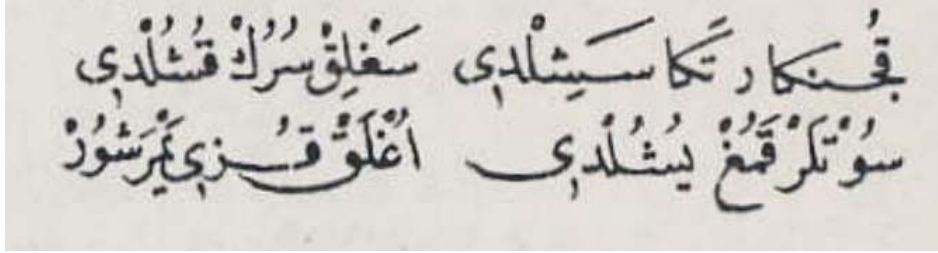 قُجنكار تَكا سَيِشلْدِى سَغْلِقْ سُرُكْ قُشُلْدِى
سُوْتلَرْ قَمُغْ يُشُلْدِى اُغْلَقْ قُزِى يَمْرَشُوُرْ